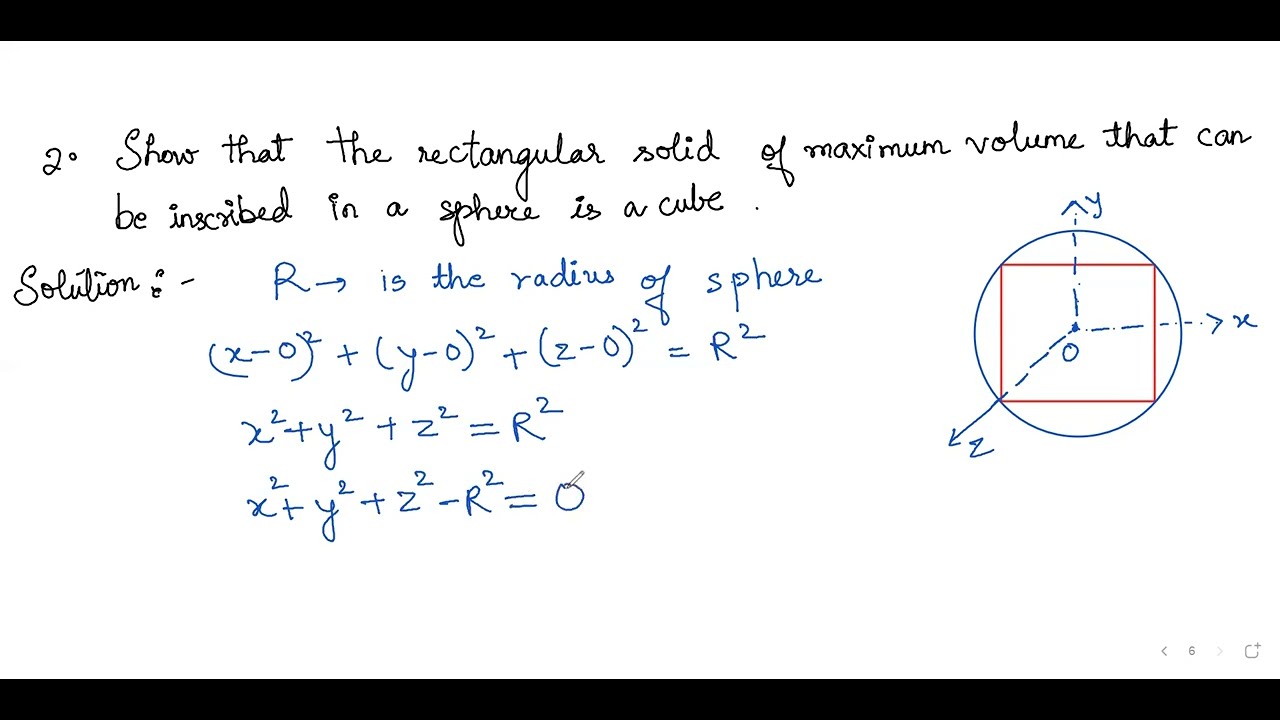 2. Show that the rectangular solid of maximum volume that can
be inscribed in a sphere is a cube.
Solution :- R → is the radius of sphere
(x-0)² + (y-0)² + (z-0)² = R²
x² + y² + z² = R²
x² + y² + z² - R² = 0
y
x
O
z
6